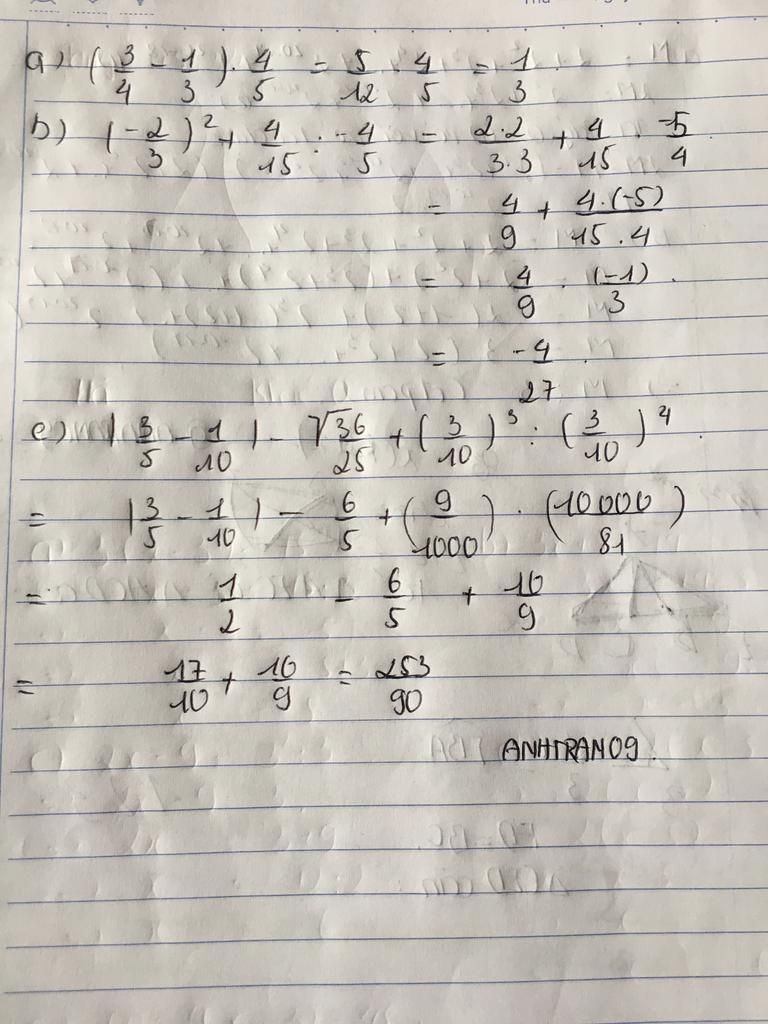 a) (3/4 - 1/3) . 4/5 = 5/12 . 4/5 = 1/3
b) (-2/3)² + 4/15 : -4/5 = 2.2/3.3 + 4/15 . -5/4
= 4/9 + 4.(-5)/15.4
= 4/9 . (-1)/3 .
= -4/27 .
c) |3/5 - 1/10| - √36/25 + (3/10)³ : (3/10)⁴ .
= |3/5 - 1/10| - 6/5 + (9/1000) . (10000/81)
= 1/2 - 6/5 + 10/9
= 17/10 + 10/9 = 253/90
ANHTRAN09 .